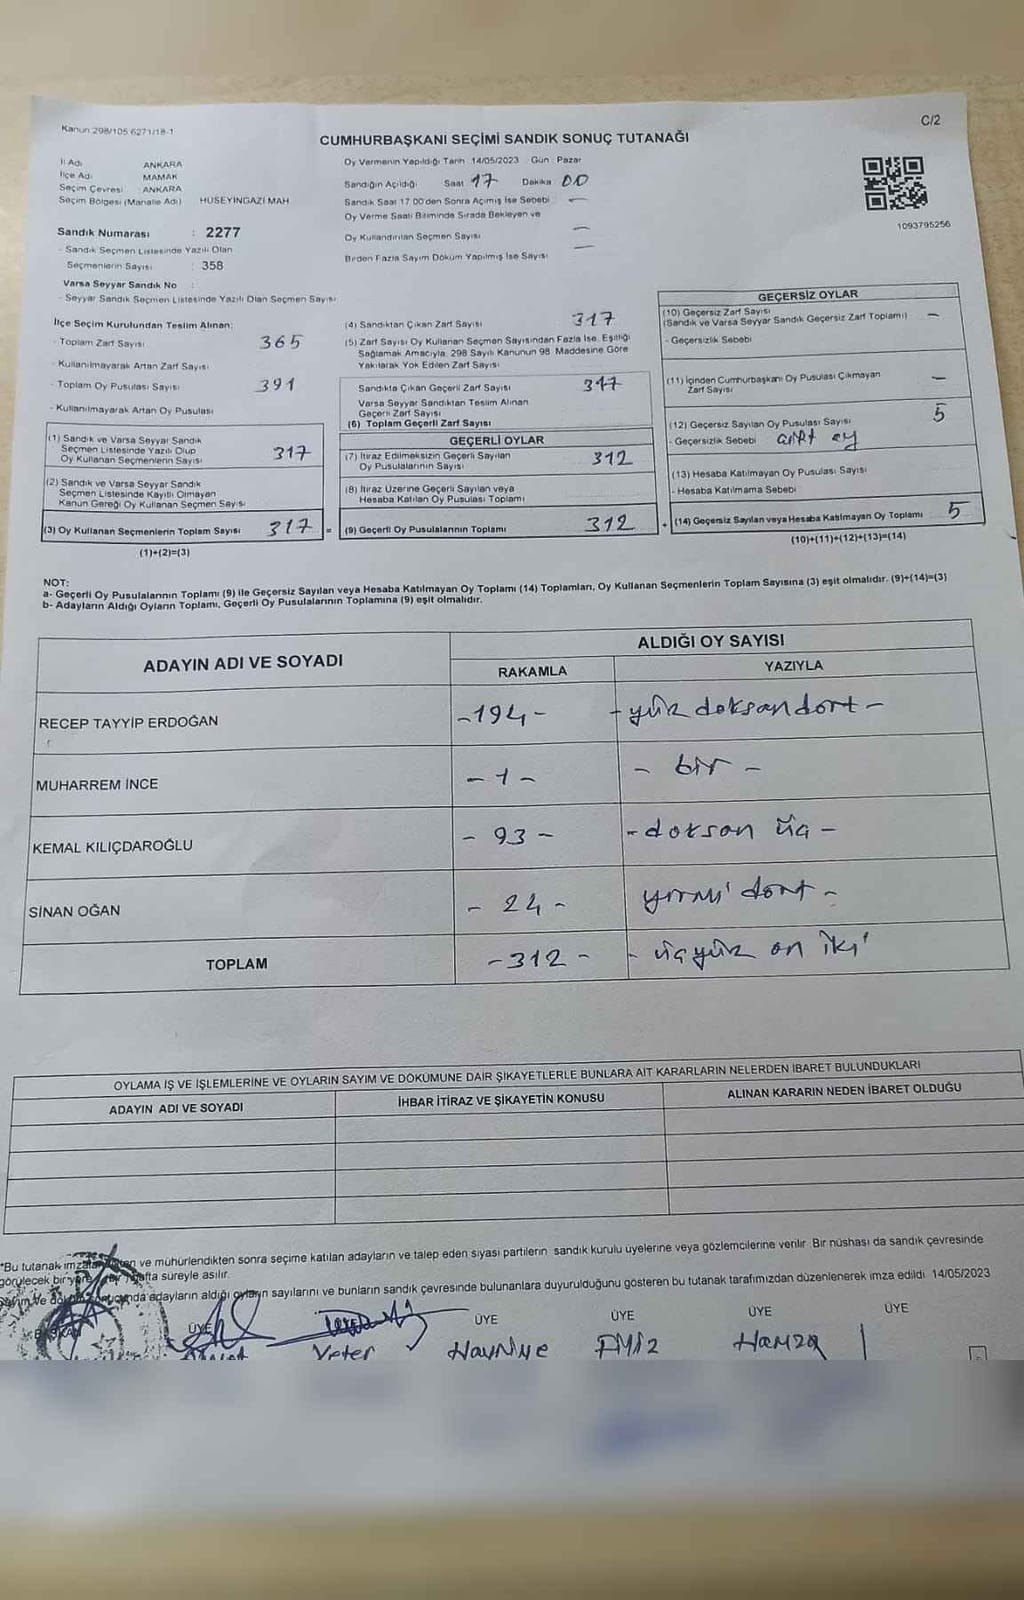 Kanun 298/105 6271/18-1
C/2
CUMHURBAŞKANI SEÇİMİ SANDIK SONUÇ TUTANAĞI
İl Adı ANKARA
İlçe Adı MAMAK
Seçim Çevresi : ANKARA
Seçim Bölgesi (Mahalle Adı) HÜSEYİNGAZİ MAH.
Sandık Numarası : 2277
- Sandık Seçmen Listesinde Yazılı Olan
Seçmenlerin Sayısı : 358
Varsa Seyyar Sandık No :
- Seyyar Sandık Seçmen Listesinde Yazılı Olan Seçmen Sayısı
Oy Vermenin Yapıldığı Tarih 14/05/2023 Gün : Pazar
Sandığın Açıldığı Saat 17 Dakika 00
Sandık Saat 17.00'den Sonra Açılmış İse Sebebi -
Oy Verme Saati Bitiminde Sırada Bekleyen ve
Oy Kullandırılan Seçmen Sayısı -
Birden Fazla Sayım Döküm Yapılmış İse Sayısı -
1093795256
İlçe Seçim Kurulundan Teslim Alınan:
- Toplam Zarf Sayısı 365
- Kullanılmayarak Artan Zarf Sayısı
- Toplam Oy Pusulası Sayısı 391
- Kullanılmayarak Artan Oy Pusulası
(1) Sandık ve Varsa Seyyar Sandık
Seçmen Listesinde Yazılı Olup
Oy Kullanan Seçmenlerin Sayısı 317
(2) Sandık ve Varsa Seyyar Sandık
Seçmen Listesinde Kayıtlı Olmayan
Kanun Gereği Oy Kullanan Seçmen Sayısı
(3) Oy Kullanan Seçmenlerin Toplam Sayısı 317 =
(1)+(2)=(3)
(4) Sandıktan Çıkan Zarf Sayısı 317
(5) Zarf Sayısı Oy Kullanan Seçmen Sayısından Fazla İse, Eşitliği
Sağlamak Amacıyla, 298 Sayılı Kanunun 98. Maddesine Göre
Yakılarak Yok Edilen Zarf Sayısı
Sandıkta Çıkan Geçerli Zarf Sayısı 317
Varsa Seyyar Sandıktan Teslim Alınan
Geçerli Zarf Sayısı
(6) Toplam Geçerli Zarf Sayısı
GEÇERLİ OYLAR
(7) İtiraz Edilmeksizin Geçerli Sayılan
Oy Pusulalarının Sayısı 312
(8) İtiraz Üzerine Geçerli Sayılan veya
Hesaba Katılan Oy Pusulası Toplamı
(9) Geçerli Oy Pusulalarının Toplamı 312 +
GEÇERSİZ OYLAR
(10) Geçersiz Zarf Sayısı
(Sandık ve Varsa Seyyar Sandık Geçersiz Zarf Toplamı) -
- Geçersizlik Sebebi
(11) İçinden Cumhurbaşkanı Oy Pusulası Çıkmayan
Zarf Sayısı -
(12) Geçersiz Sayılan Oy Pusulası Sayısı 5
- Geçersizlik Sebebi oy
(13) Hesaba Katılmayan Oy Pusulası Sayısı
- Hesaba Katılmama Sebebi
(14) Geçersiz Sayılan veya Hesaba Katılmayan Oy Toplamı 5
(10)+(11)+(12)+(13)=(14)
NOT:
a- Geçerli Oy Pusulalarının Toplamı (9) ile Geçersiz Sayılan veya Hesaba Katılmayan Oy Toplamı (14) Toplamları, Oy Kullanan Seçmenlerin Toplam Sayısına (3) eşit olmalıdır. (9)+(14)=(3)
b- Adayların Aldığı Oyların Toplamı, Geçerli Oy Pusulalarının Toplamına (9) eşit olmalıdır.
ADAYIN ADI VE SOYADI ALDIĞI OY SAYISI
RAKAMLA YAZIYLA
RECEP TAYYİP ERDOĞAN -194- -yüz doksan dört-
MUHARREM İNCE -1- - bir -
KEMAL KILIÇDAROĞLU - 93 - -doksan üç -
SİNAN OĞAN - 24 - yirmi dört -
TOPLAM -312 - - üçyüz on iki
OYLAMA İŞ VE İŞLEMLERİNE VE OYLARIN SAYIM VE DÖKÜMÜNE DAİR ŞİKAYETLERLE BUNLARA AİT KARARLARIN NELERDEN İBARET BULUNDUKLARI
ADAYIN ADI VE SOYADI İHBAR İTİRAZ VE ŞİKAYETİN KONUSU ALINAN KARARIN NEDEN İBARET OLDUĞU
*Bu tutanak ve mühürlendikten sonra seçime katılan adayların ve talep eden siyasi partilerin sandık kurulu üyelerine veya gözlemcilerine verilir. Bir nüshası da sandık çevresinde
görülecek bir hafta süreyle asılır.
adayların aldığı oyların sayılarını ve bunların sandık çevresinde bulunanlara duyurulduğunu gösteren bu tutanak tarafımızdan düzenlenerek imza edildi. 14/05/2023
BAŞKAN ÜYE ÜYE ÜYE ÜYE ÜYE
Yeter Hayriye Filiz Hamza